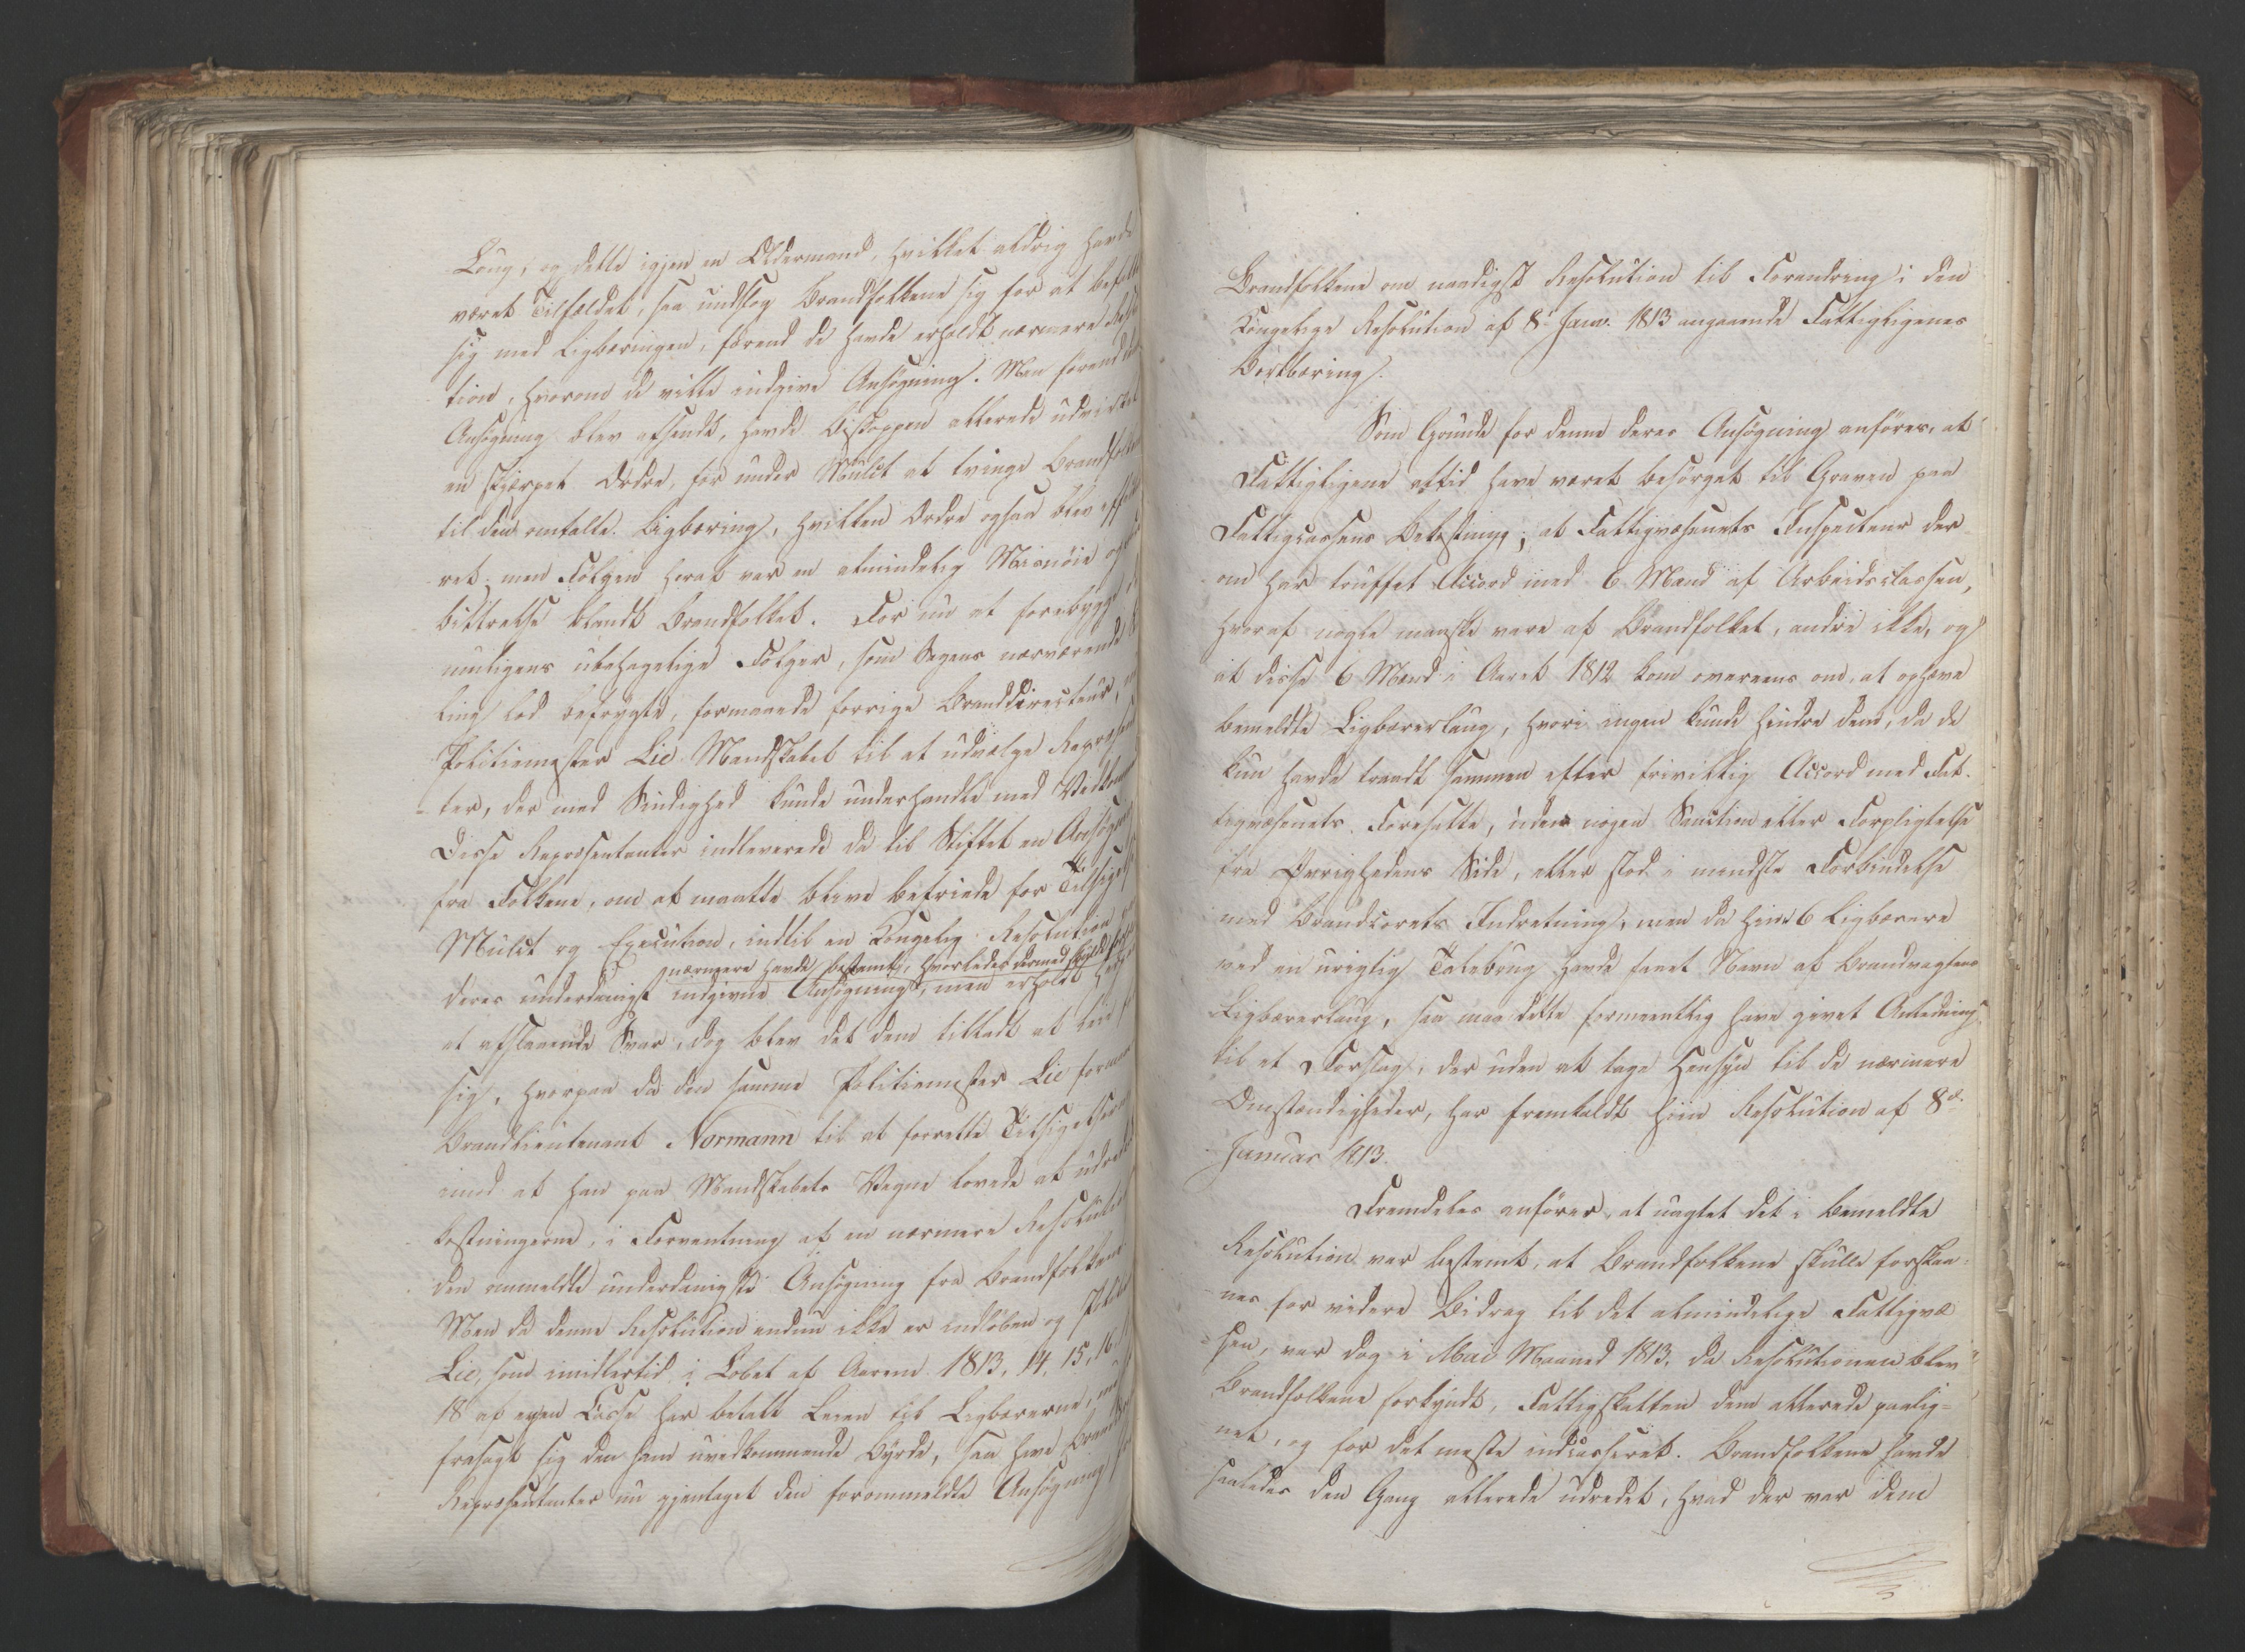 Laug, og dette igjen en Oldermand, hvilket aldrig havde
været Tilfældet, saa undslog Brandfolkene sig for at befatte
sig med Ligbæringen, førend de havde erholdt nærmere Reso
tion, hvorom de vilde indgive Ansøgning. Men førend
Ansøgning blev afsendt, havde Biskoppen allerede udvirket
en skjærpet Ordre, for under Mulct at tvinge Brandfolke
til den omtalte Ligbæring, hvilken Ordre ogsaa blev
ret; men Følgen heraf var en almindelig Misnøie og
bittrelse blandt Brandfolket. For nu at forebygge
muligens ubehagelige Følger, som Sagens nærværende
ling lod befrygte, formaaede forrige Branddirecteur,
Politiemester Lie Mandskabet til at udvælge Repræsen
ter, der med Sindighed kunde underhandle med Vedkom
Disse Repræsentanter indleverede da til Stiftet en Ansøgn
fra Folkene, om at maatte blive befriede for Tilsigelse
Mulct og Execution, indtil en Kongelig Resolution
nærmere havde bestemt, hvorledes dermed skulde
deres underdanigst indgivne Ansøgning, men erholdt
et afslaaende Svar, dog blev det dem tilladt at leie
sig, hvorpaa da den samme Politiemester Lie formaa
Brandlieutenant Normann til at forrette Tilsigelserne
imod at han paa Mandskabets Vegne lovede at udrede
kostningerne, i Forventning af en nærmere Resolution
den anmeldte underdanigste Ansøgning fra Brandfolkene
Men da denne Resolution endnu ikke er indløben og
Lie, som imidlertid i Løbet af Aarene 1813, 14, 15, 16
18 af egen Casse har betalt Leien til Ligbærerne,
frasagt sig den ham uvedkommende Byrde, saa have
Repræsentanter nu gjentaget den forommeldte Ansøgning
Brandfolkene om naadigst Resolution til Forandring i den
Kongelige Resolution af 8de Janv. 1813 angaaende Fattigligenes
Bortbæring.
Som Grunde for denne deres Ansøgning anføres, at
Fattigligene altid have været besørget til Graven paa
Fattigcassens Bekostning; at Fattigvæsenets Inspecteur der
om har truffet Accord med 6 Mænd af Arbeidsclassen,
hvoraf nogle maaske vare af Brandfolket, andre ikke, og
at disse 6 Mænd i Aaret 1812 kom overeens om, at ophæve
bemeldte Ligbærerlaug, hvori ingen kunde hindre dem, da de
kun havde traadt sammen efter frivillig Accord med Fat-
tigvæsenets Foresatte, uden nogen Sanction eller Forpligtelse
fra Øvrighedens Side, eller stod i mindste Forbindelse
med Brandcorets Indretning, men da hine 6 Ligbærere
ved en urigtig Talebrug havde faaet Navn af Brandvagtens
Ligbærerlaug, saa maa dette formeentlig have givet Anledning
til et Forslag, der uden at tage Hensyn til de nærmere
Omstændigheder, har fremkaldt hiin Resolution af 8de
Januar 1813.
Fremdeles anføres, at uagtet det i bemeldte
Resolution var bestemt, at Brandfolkene skulle forskaa-
nes for videre Bidrag til det almindelige Fattigvæ
sen, var dog i Mai Maaned 1813, da Resolutionen blev
Brandfolkene forkyndt, Fattigskatten dem allerede paalig=
net, og for det meste indcasseret. Brandfolkene havde
saaledes den Gang allerede udredet, hvad der var dem